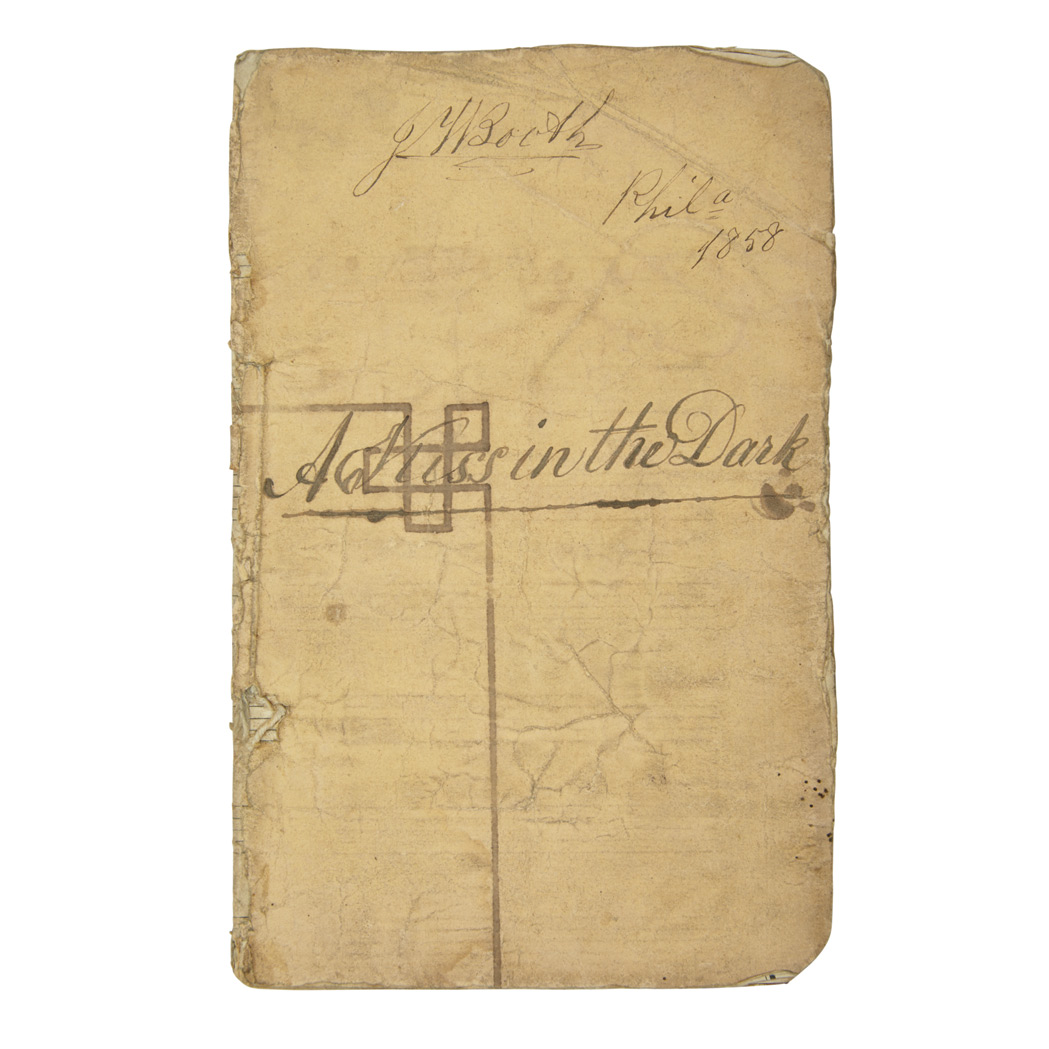 J W Booth
Phila
1858
A Kiss in the Dark